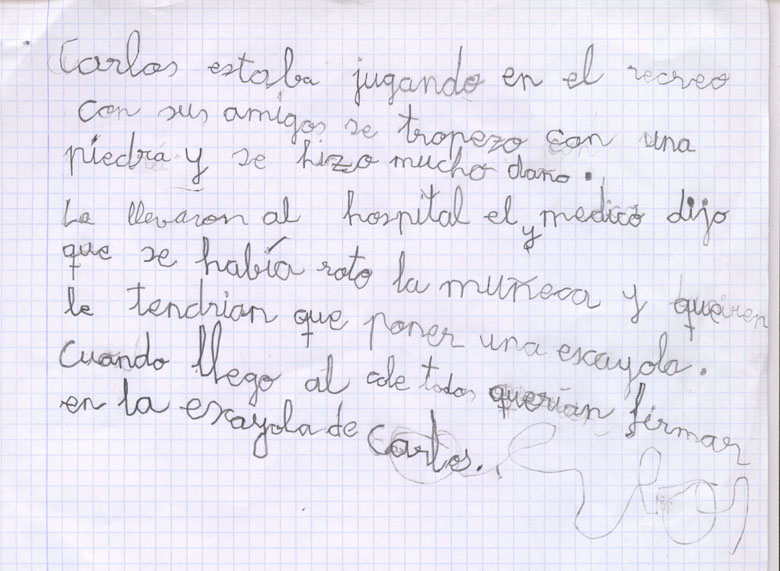 Carlos estaba jugando en el recreo
con sus amigos se tropezo con una
piedra y se hizo mucho daño.
Le llevaron al hospital el y medico dijo
que se había roto la muñeca y
le tendrian que poner una escayola.
Cuando llego al cole todos querían firmar
en la escayola de Carlos.